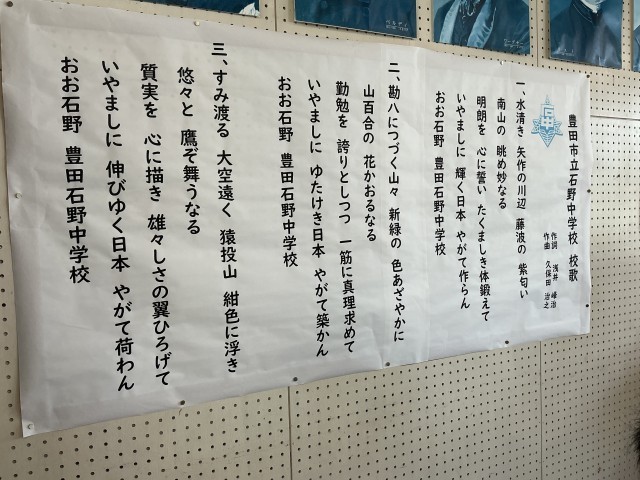 豊田市立石野中学校 校歌
作詞 浅井 峰治
作曲 久保田 治之
一、水清き 矢作の川辺 藤波の 紫匂い
南山の 眺め妙なる
明朗を 心に誓い たくましき体鍛えて
いやましに 輝く日本 やがて作らん
おお石野 豊田石野中学校
二、勘八につづく山々 新緑の 色あざやかに
山百合の 花かおるなる
勤勉を 誇りとしつつ 一筋に真理求めて
いやましに ゆたけき日本 やがて築かん
おお石野 豊田石野中学校
三、すみ渡る 大空遠く 猿投山 紺色に浮き
悠々と 鷹ぞ舞うなる
質実を 心に描き 雄々しさの翼ひろげて
いやましに 伸びゆく日本 やがて荷わん
おお石野 豊田石野中学校